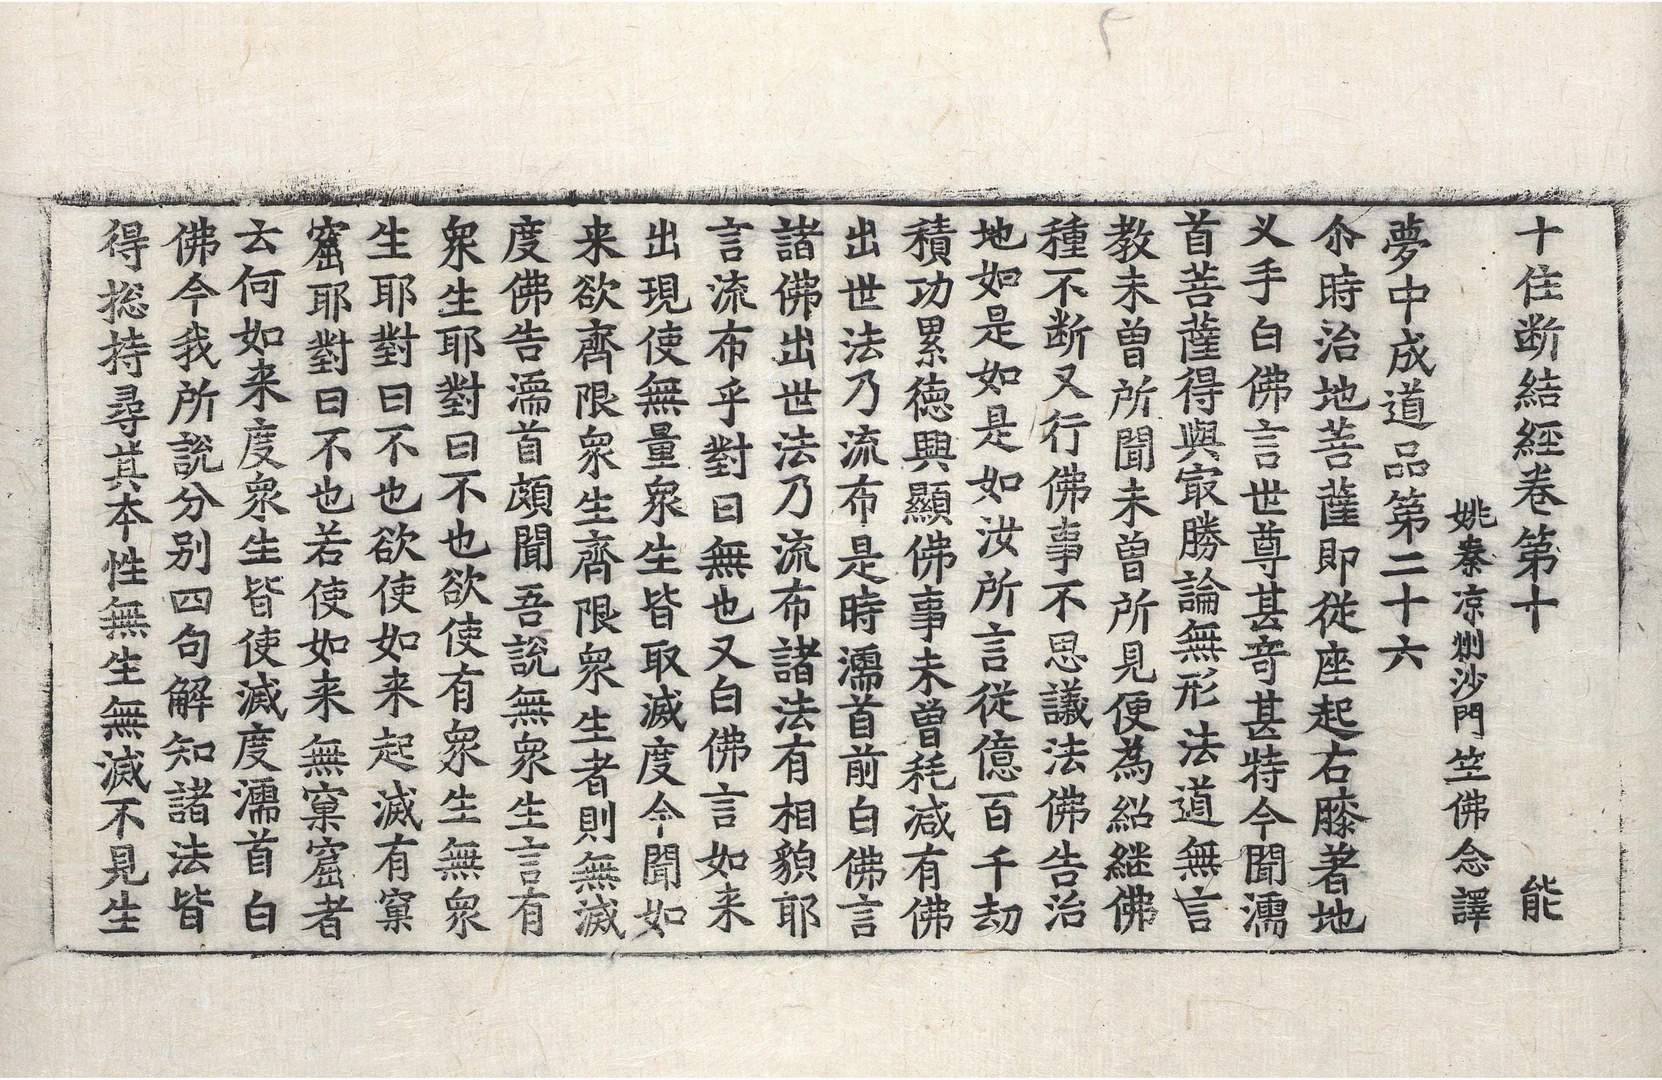 十住断結經卷第十　能
姚秦凉州沙門竺佛念譯
夢中成道品第二十六
尒時治地菩薩即從座起右膝著地
义手白佛言世尊甚竒甚特今聞濡
首菩薩得與㝡勝論無形法道無言
教未曾所聞未曾所見便為紹継佛
種不断又行佛事不思議法佛告治
地如是如是如汝所言從億百千劫
積功累德興顯佛事未曾秏減有佛
出世法乃流布是時濡首前白佛言
諸佛出世法乃流布諸法有相貌耶
言流布乎對曰無也又白佛言如来
出現使無量衆生皆取滅度今聞如
来欲齊限衆生齊限衆生者則無滅
度佛告濡首頗聞吾說無衆生言有
衆生耶對曰不也欲使有衆生無衆
生耶對曰不也欲使如来起滅有窠
窟耶對曰不也若使如来無窠窟者
云何如来度衆生皆使滅度濡首白
佛今我所說分别四句解知諸法皆
得捴持尋其本性無生無滅不見生